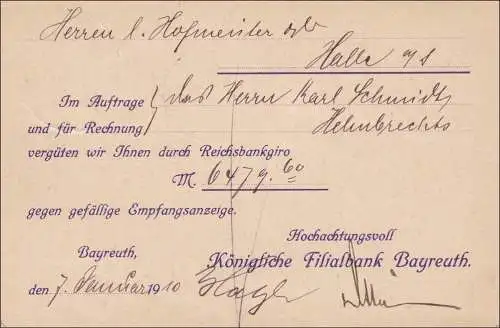 Herren L. Hofmeister
Halle a/S
Im Auftrage des Herrn Karl Schmidt,
und für Rechnung Helmbrechts
vergüten wir Ihnen durch Reichsbankgiro
M. 6479.60
gegen gefällige Empfangsanzeige.
Hochachtungsvoll
Bayreuth, Königliche Filialbank Bayreuth.
den 7. Januar 1910